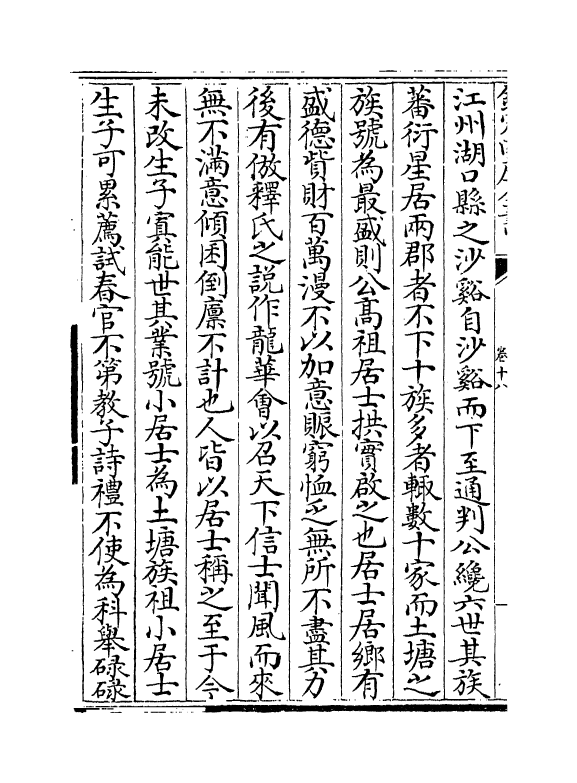 欽定四庫全書
卷十八
江州湖口縣之沙谿自沙谿而下至通判公纔六世其族
蕃衍星居兩郡者不下十族多者輙數十家而土塘之
族號為最盛則公髙祖居士拱實啟之也居士居鄉有
盛德貲財百萬漫不以加意賑窮恤乏無所不盡其力
後有倣釋氏之說作龍華㑹以召天下信士聞風而來
無不滿意傾囷倒廪不計也人皆以居士稱之至于今
未改生子寘能世其業號小居士為土塘族祖小居士
生子可累薦試春官不第教子詩禮不使為科舉碌碌